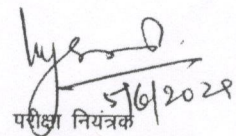 5/6/2024
परीक्षा नियंत्रक